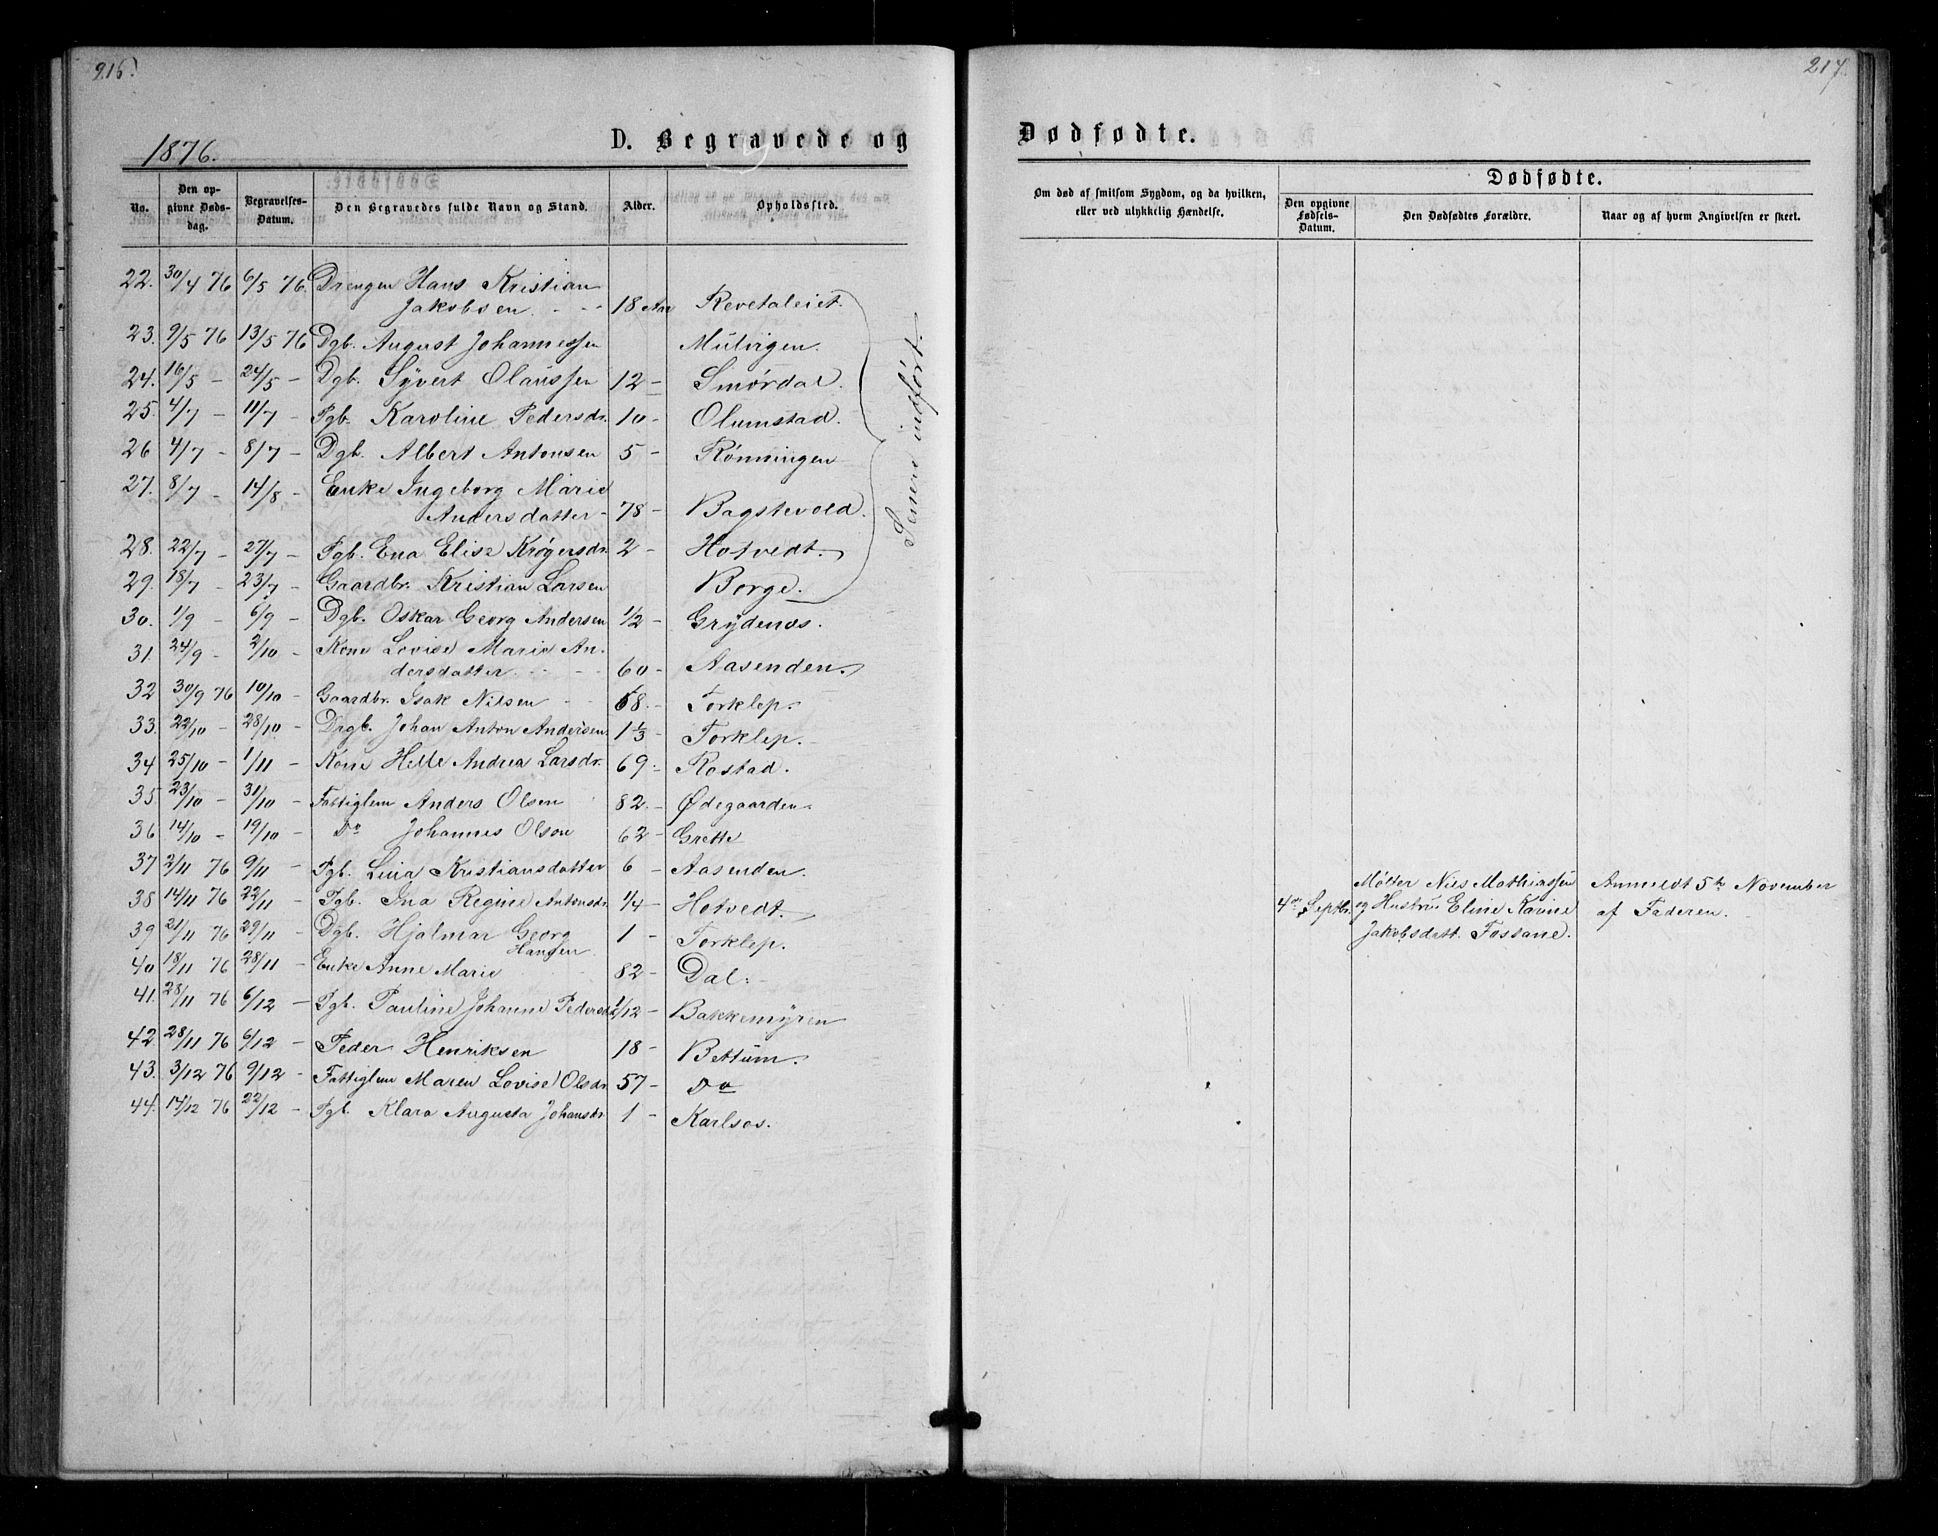 216.
217.
1876.
D. Begravede og
Dødfødte.
No.
Den opgivne Dødsdag.
Begravelses-Datum.
Den Begravedes fulde Navn og Stand.
Alder.
Opholdssted.
Om død af smitsom Sygdom, og da hvilken, eller ved ulykkelig Hændelse.
Dødfødte.
Den opgivne Fødsels-Datum.
Den Dødfødtes Forældre.
Naar og af hvem Angivelsen er skeet.
22. 30/4 76 6/5 76. Drengen Hans Kristian
Jakobsen. 18 Aar Revetaleiet.
23. 9/5 76 13/5 76 Dgb. August Johannessen Mulvigen.
24. 16/5 - 24/5 - Dgb. Syvert Olaussen 12 - Smørdal.
25. 4/7 - 11/7 - Pgb. Karoline Pedersdr. 10 - Olumstad.
26 4/7 - 8/7 - Dgb. Albert Antonsen 5 - Rønningen
27. 8/7 - 14/8 - Enke Ingeborg Marie
Andersdatter - 78 - Bagstevold.
28. 22/7 - 27/7 - Pgb. Ena Elise Krøgersdr. 2 - Hotvedt.
29. 18/7 - 23/7 - Gaardbr. Kristian Larsen Borge.
Senere indført.
30. 1/9 - 6/9 - Dgb. Oskar Georg Andersen 1/2 - Grydenes.
31. 24/9 - 2/10 - Kone Lovise Marie An-
dersdatter 60 - Aasenden.
32 30/9 76 10/10 - Gaardbr. Isak Nilsen 58. - Torklep.
33. 22/10 - 28/10 - Drgb. Johan Anton Andersen. 1 1/3 - Torklep. -
34 25/10 - 1/11 - Kone Helle Andrea Larsdr. 69 - Rostad.
35 23/10 - 31/10 - Fattiglem Anders Olsen 82. - Ødegaarden
36 14/10 - 19/10 - Do Johannes Olson 62 - Grette
37 2/11 76 9/11 - Pgb. Lina Kristiansdatter 6 - Aasenden.
38 14/11 76 22/11 - Pgb. Ina Regine Antonsdr. 1/4 - Hotvedt.
39 21/11 76 29/11 - Dgb. Hjalmar Georg
Hansen. 1 - Torklep.
40 18/11 76 28/11 - Enke Anne Marie 82 - Dal.
41. 28/11 76 6/12 - Pgb. Pauline Johanne Pedersdt. 1/12 - Bakkemyren
42 28/11 76 6/12 - Peder Henriksen 18 - Bettum.
43. 3/12 76 9/12 - Fattiglem Maren Lovise Olsdr. 57 - Do
44. 14/12 76 22/12 - Pgb. Klara Augusta Johansdr. 1 - Karlsos.
Møller Nils Mathiassen Anmeldt 5te November
4de Septbr. og Hustru Eline Karine af Faderen.
Jakobsdatt. Fossane.